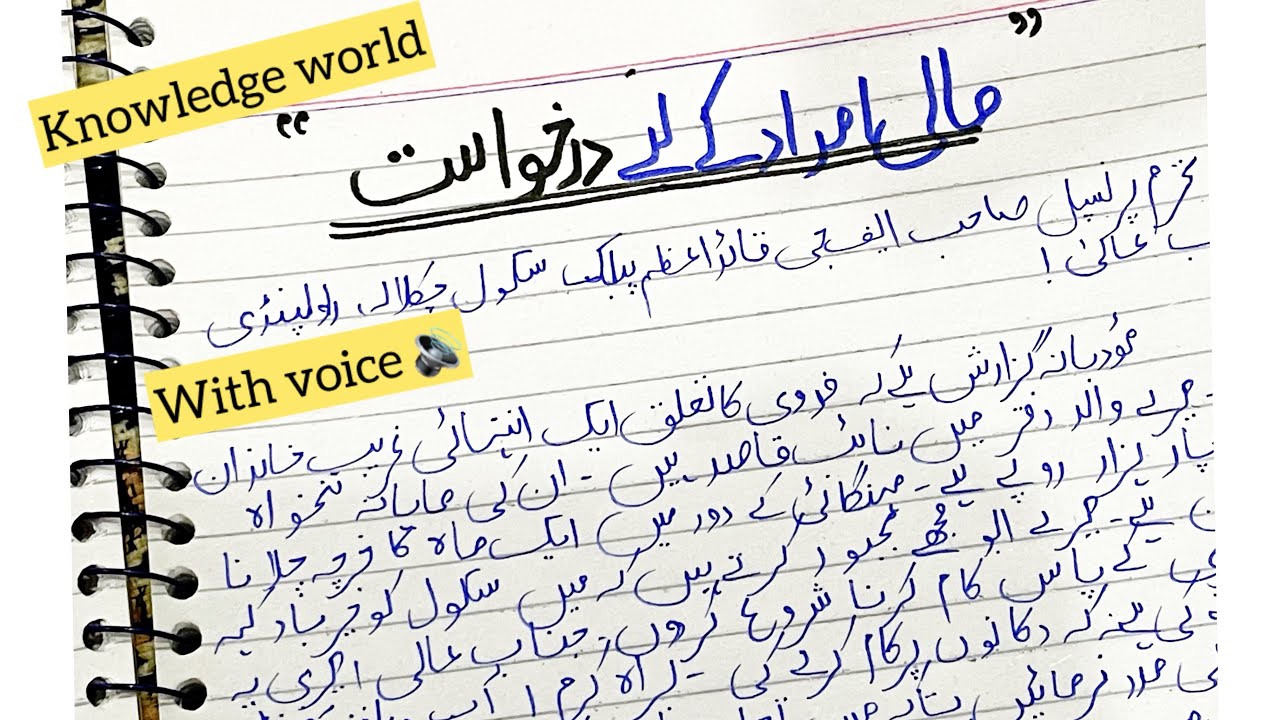 Knowledge world
"مالی امداد کے لیے درخواست"
محترم پرنسپل صاحب ایف جی قائداعظم پبلک سکول چکلالہ راولپنڈی
With voice
مؤدبانہ گزارش ہے کہ فدوی کا تعلق ایک انتہائی غریب خاندان
میرے والد دفتر میں نائب قاصد ہیں ۔ ان کی ماہانہ تنخواہ
ہزار روپے ہے ۔ مہنگائی کے دور میں ایک ماہ کا خرچہ چلانا
ہے ۔ میرے ابو مجھے مجبور کرتے ہیں کہ میں سکول کو خیرباد کہہ
کے پاس کام کرنا شروع کروں، جناب عالی میری یہ
کی ہے نہ کہ دکانوں پر کام کرنے کی ۔ براہ کرم آپ
مدد فرمائیں تاکہ میں